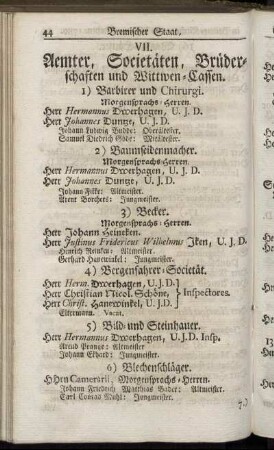 44 Bremischer Staat.
VII.
Aemter, Societäten, Brüder-
schaften und Wittwen-Cassen.
1) Barbirer und Chirurgi.
Morgensprachs-Herren.
Herr Hermannus Dwerhagen, U. J. D.
Herr Johannes Duntze, U. J. D.
Johann Ludwig Budde: Oberältester.
Samuel Diedrich Göde: Mitältester.
2) Baumseidenmacher.
Morgensprachs-Herren.
Herr Hermannus Dwerhagen, U. J. D.
Herr Johannes Duntze, U. J. D.
Johann Filter: Altmeister.
Arent Borchers: Jungmeister.
3) Becker.
Morgensprachs-Herren.
Herr Johann Heineken.
Herr Justinus Fridericus Wilhelmus Iken, U. J. D.
Hinrich Renken: Altmeister.
Gerhard Hasewinkel: Jungmeister.
4) Bergenfahrer-Societät.
Herr Herm. Dwerhagen, U.J.D.
Herr Christian Nicol. Schöne, Inspectores.
Herr Christ. Hanewinkel, U.J.D.
Eltermann. Vacat.
5) Bild- und Steinhauer.
Herr Hermannus Dwerhagen, U. J. D. Insp.
Arend Prange: Altmeister
Johann Ehhard: Jungmeister.
6) Blechenschläger.
HHrn Camerarii, Morgensprachs-Herren.
Johann Friedrich Matthias Bader: Altmeister.
Carl Conrad Muhl: Jungmeister.
7.)